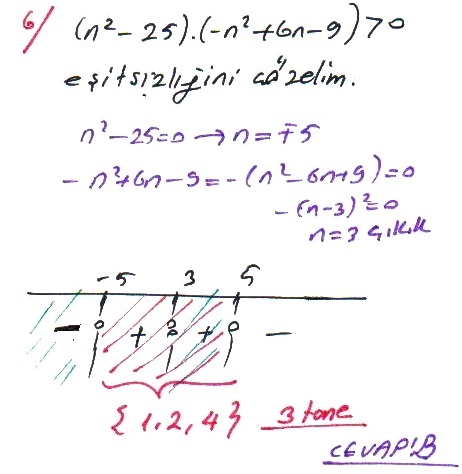 6/ (n²-25).(-n²+6n-9)>0
eşitsizliğini çözelim.
n²-25=0 → n=∓5
- n²+6n-9=-(n²-6n+9)=0
-(n-3)²=0
n=3 Ç.K.K
-5 3 5
- + + -
{1,2,4} 3 tane
CEVAP:B